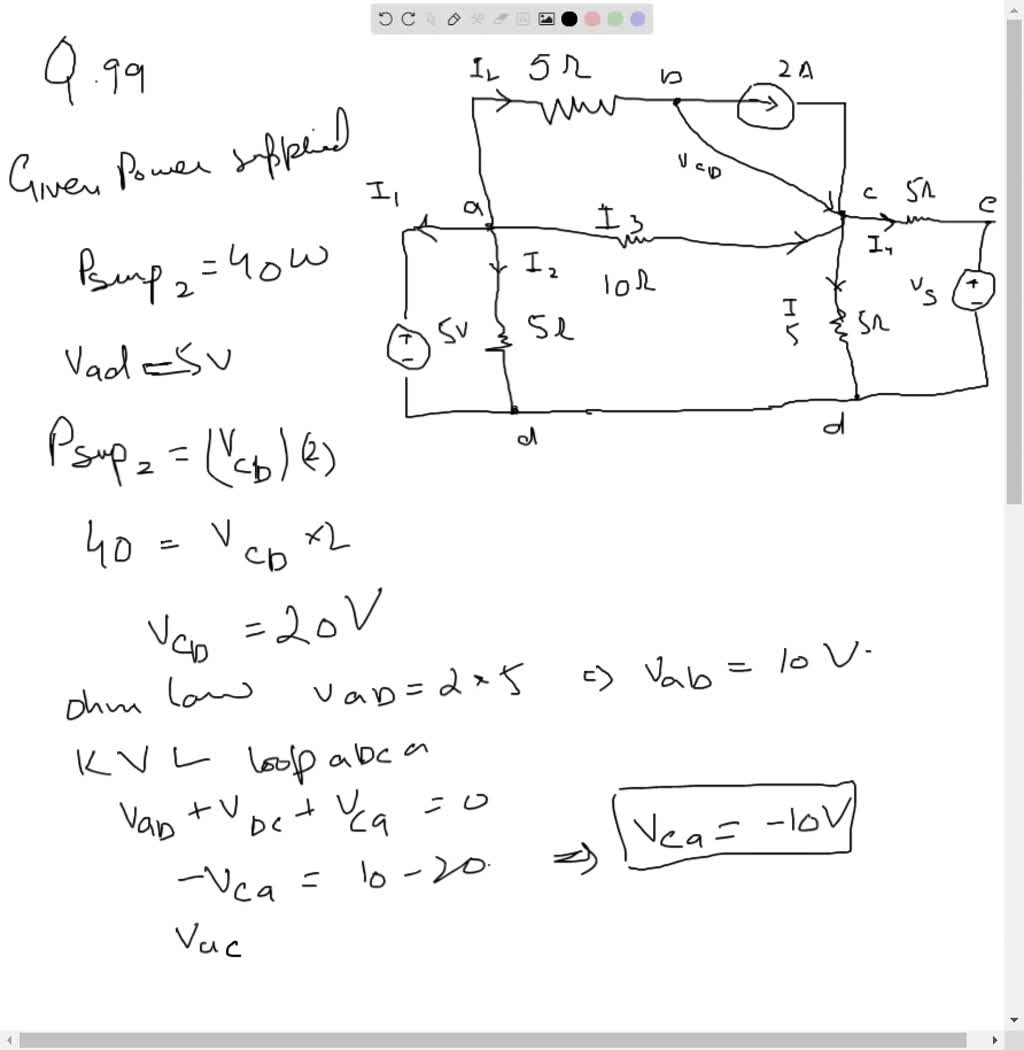 Q.99
Given Power supplied
Psup2 = 40W
Vad = 5V
Psup2 = (VCD)(2)
40 = VCD × 2
VCD = 20V
ohm law VaD = 2 × 5 => Vab = 10V.
KVL loop abca
VaD + VDC + VCa = 0
-VCa = 10 - 20 => VCa = -10V
Vac
IL 5Ω b 2A
VCD
I1 a I3 c 5Ω e
I2 10Ω I4
5V 5Ω I5 5Ω Vs
d d